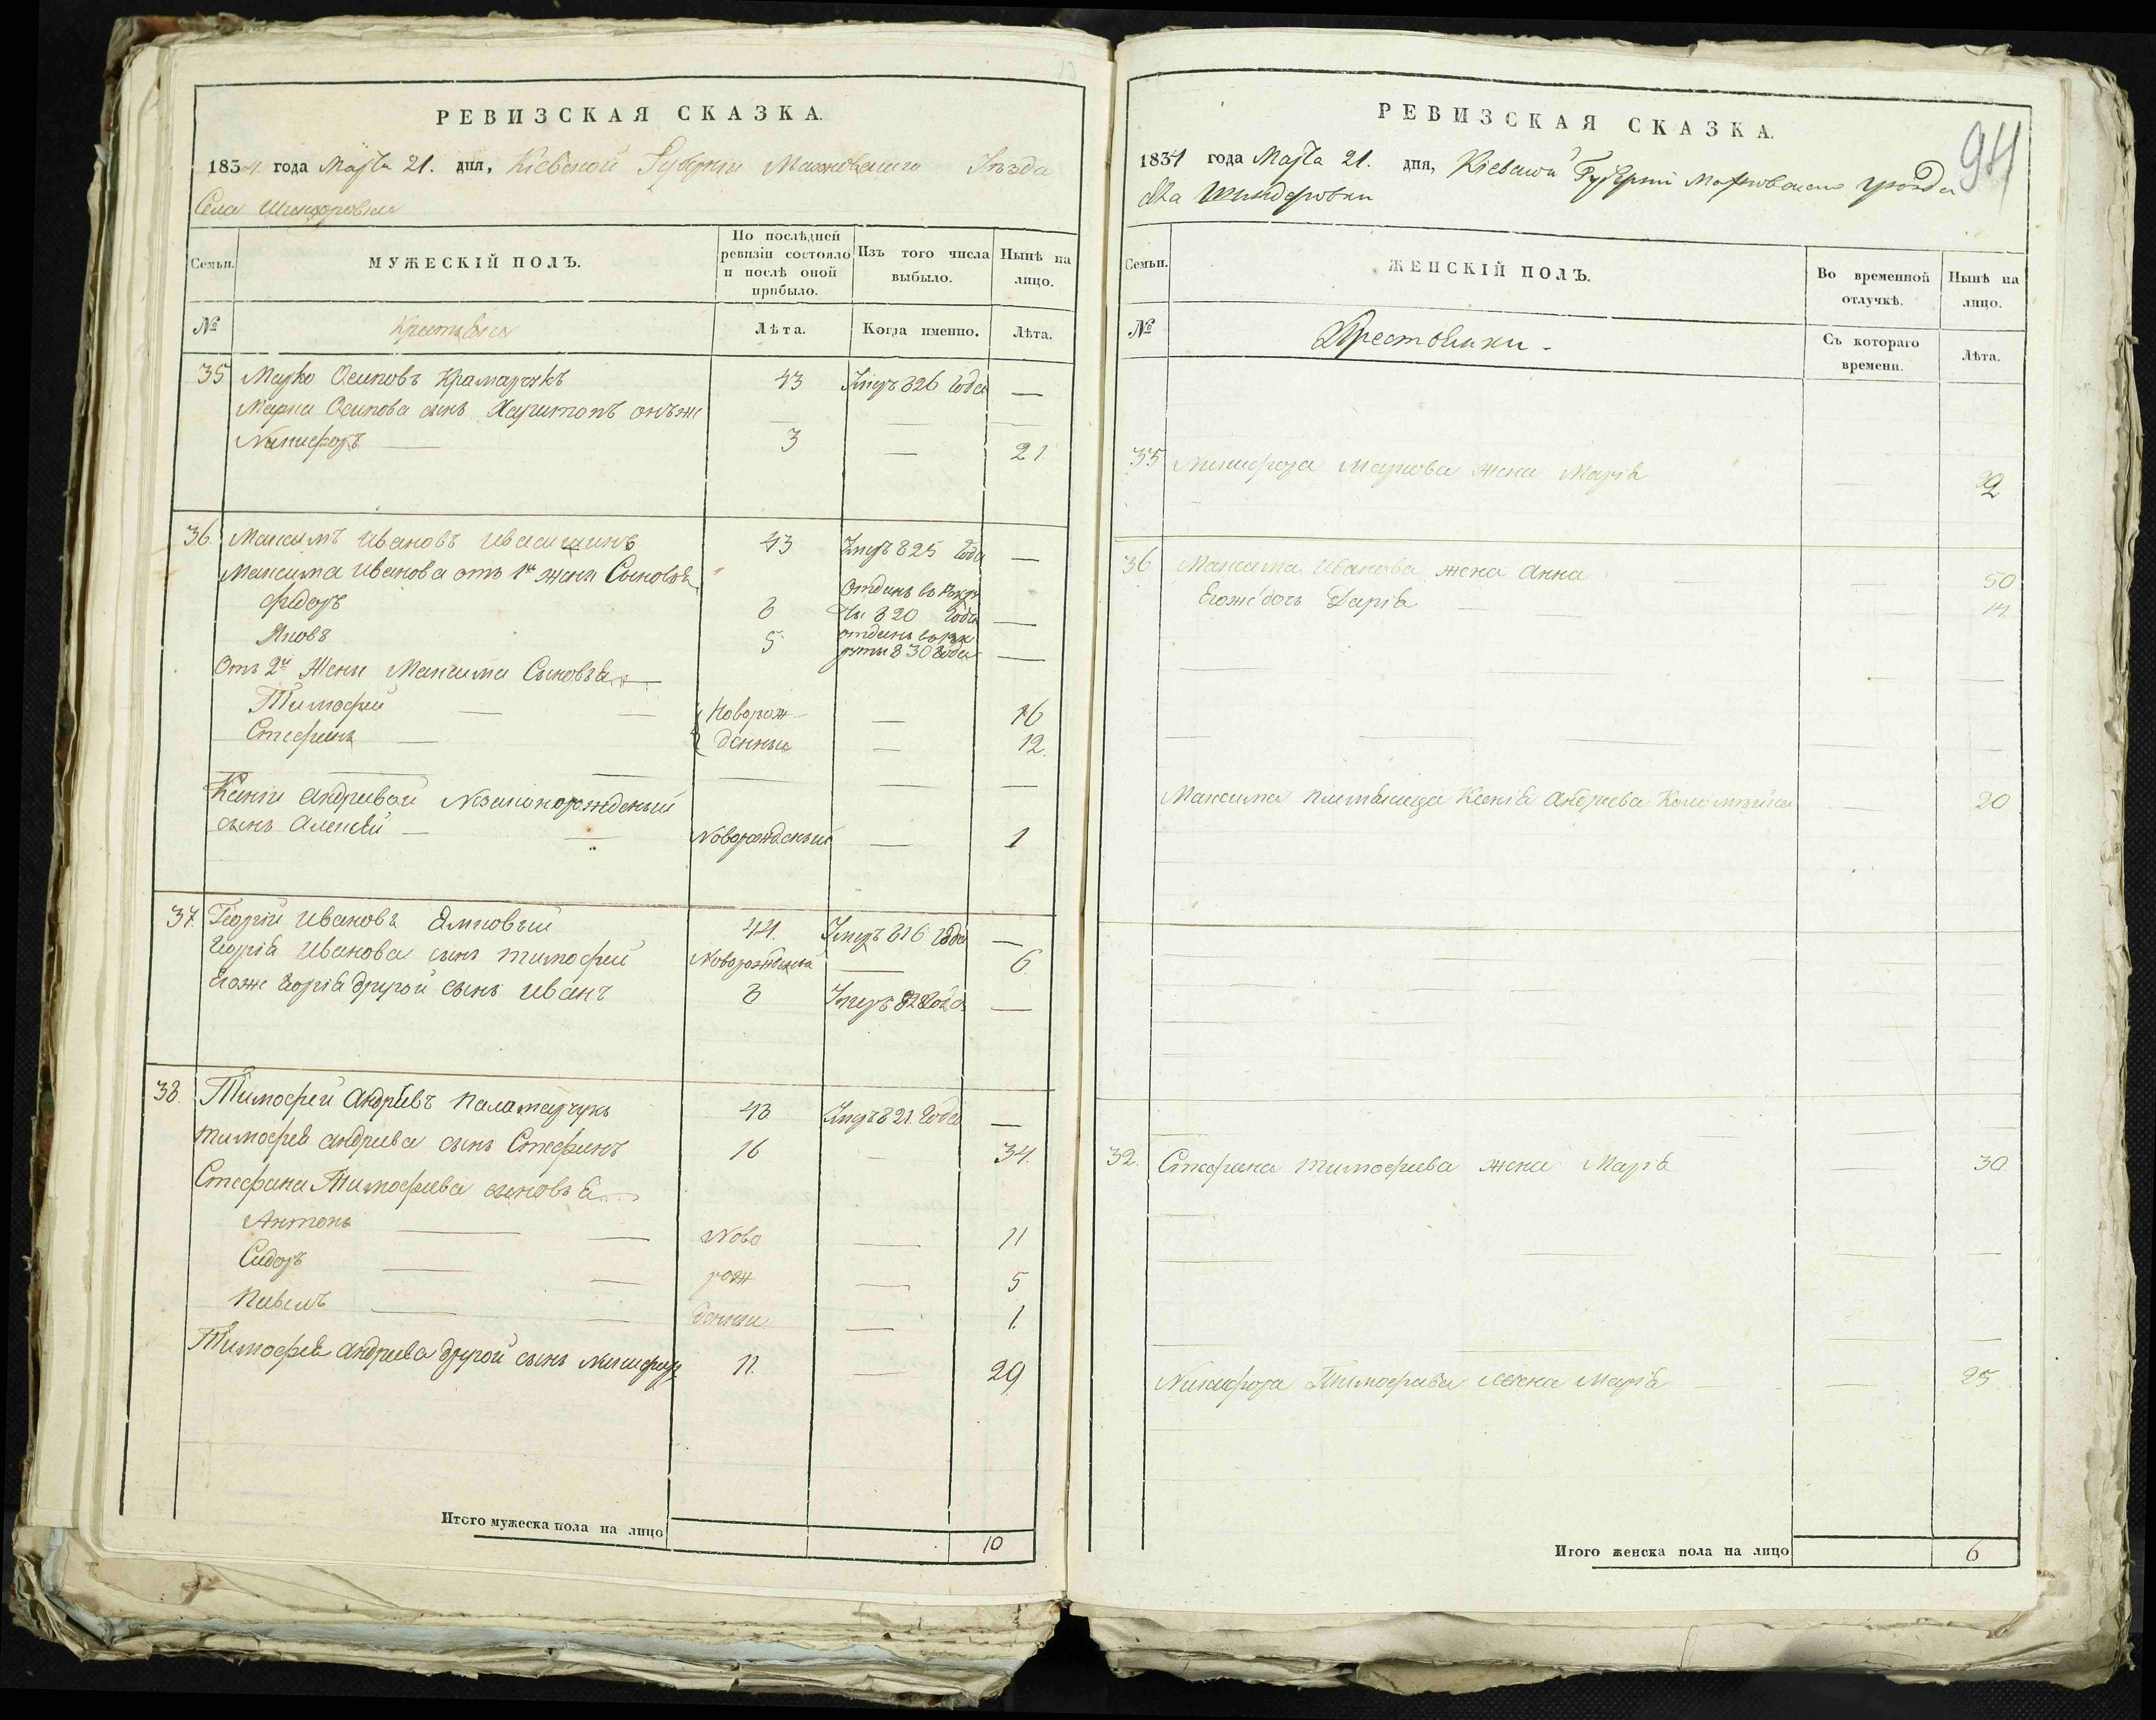 РЕВИЗСКАЯ СКАЗКА.
1834 года Марта 21. дня, Кіевской Губерніи Махновского Уезда
Села Шендеровки
Семьи.
МУЖЕСКІЙ ПОЛЪ.
По послѣдней ревизіи состояло и послѣ оной прибыло.
Изъ того числа выбыло.
Нынѣ на лицо.
№
Крестьяне
Лѣта.
Когда именно.
Лѣта.
35 Марко Осиповъ Крамарчукъ 43 Умеръ 826 Года —
Марка Осипова сынъ Харитонъ онъже
Никифоръ — 3 — 21
36. Максимъ Ивановъ Ивасишинъ 43 Умеръ 825 Года —
Максима Иванова отъ 1й жены Сыновья
Федоръ 8 Отданъ въ рекруты 820 Года —
Яковъ 5 отданъ въ рекруты 830 Года —
Отъ 2й Жены Максима Сыновья
Тимофей — Новорож — 16
Стефанъ — денные — 12.
Ксеніи Андреевой Незаконорожденый
сынъ Алексей — Новорожденый — 1
37. Георгій Ивановъ 44. Умеръ 816 Года —
Георгія Иванова сынъ Тимофей Новорожденый — 6
Егоже Георгія другой сынъ Иванъ 8 Умеръ 828 Года —
38. Тимофей Андреевъ Паламарчукъ 43 Умеръ 821 Года —
Тимофея Андреева сынъ Стефанъ 16 — 34.
Стефана Тимофеева сыновья
Антонъ — Ново — 11
Сидоръ — рож — 5
Павелъ — денные — 1.
Тимофея Андреева другой сынъ Никифоръ 11. — 29
Итого мужеска пола на лицо 10
РЕВИЗСКАЯ СКАЗКА.
94
1834 года Марта 21. дня, Кіевской Губерніи Махновского уезда
села Шендеровки
Семьи.
ЖЕНСКІЙ ПОЛЪ.
Во временной отлучкѣ.
Нынѣ на лицо.
№
Крестьянки.
Съ котораго времени.
Лѣта.
35 Никифора Маркова жена Марія — 22
36 Максима Иванова жена Анна — 50
Егоже дочь Дарія — 14
Максима Ксенія Андреева — 20
32. Стефана Тимофеева жена Марія — 30
Никифора Тимофеева жена Марія — 25
Итого женска пола на лицо 6